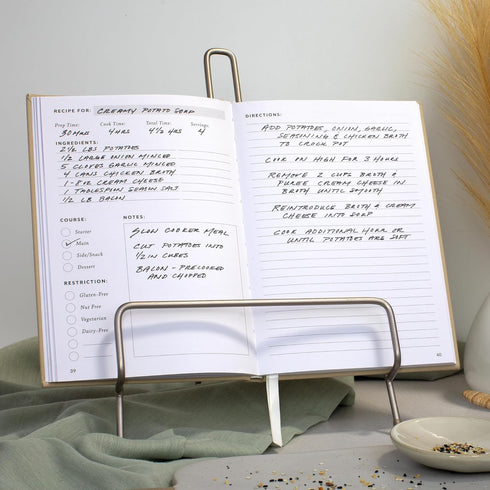 RECIPE FOR: CREAMY POTATO SOUP
Prep Time: Cook Time: Total Time: Servings:
30 MINS 4 HRS 4 1/2 HRS 4
INGREDIENTS:
2 1/2 LBS POTATOES
1/2 LARGE ONION MINCED
5 CLOVES GARLIC MINCED
4 CANS CHICKEN BROTH
1 - 8 OZ CREAM CHEESE
1 TABLESPOON SEASON SALT
1/2 LB BACON
COURSE:
Starter
Main
Side/Snack
Dessert
RESTRICTION:
Gluten-Free
Nut Free
Vegetarian
Dairy-Free
NOTES:
SLOW COOKER MEAL
CUT POTATOES INTO
1/2 IN CUBES
BACON - PRECOOKED
AND CHOPPED
39
DIRECTIONS:
ADD POTATOES, ONION, GARLIC,
SEASONING & CHICKEN BROTH
TO CROCK POT
COOK ON HIGH FOR 3 HOURS
REMOVE 2 CUPS BROTH &
PUREE CREAM CHEESE IN
BROTH UNTIL SMOOTH
REINTRODUCE BROTH & CREAM
CHEESE INTO SOUP
COOK ADDITIONAL HOUR OR
UNTIL POTATOES ARE SOFT
40